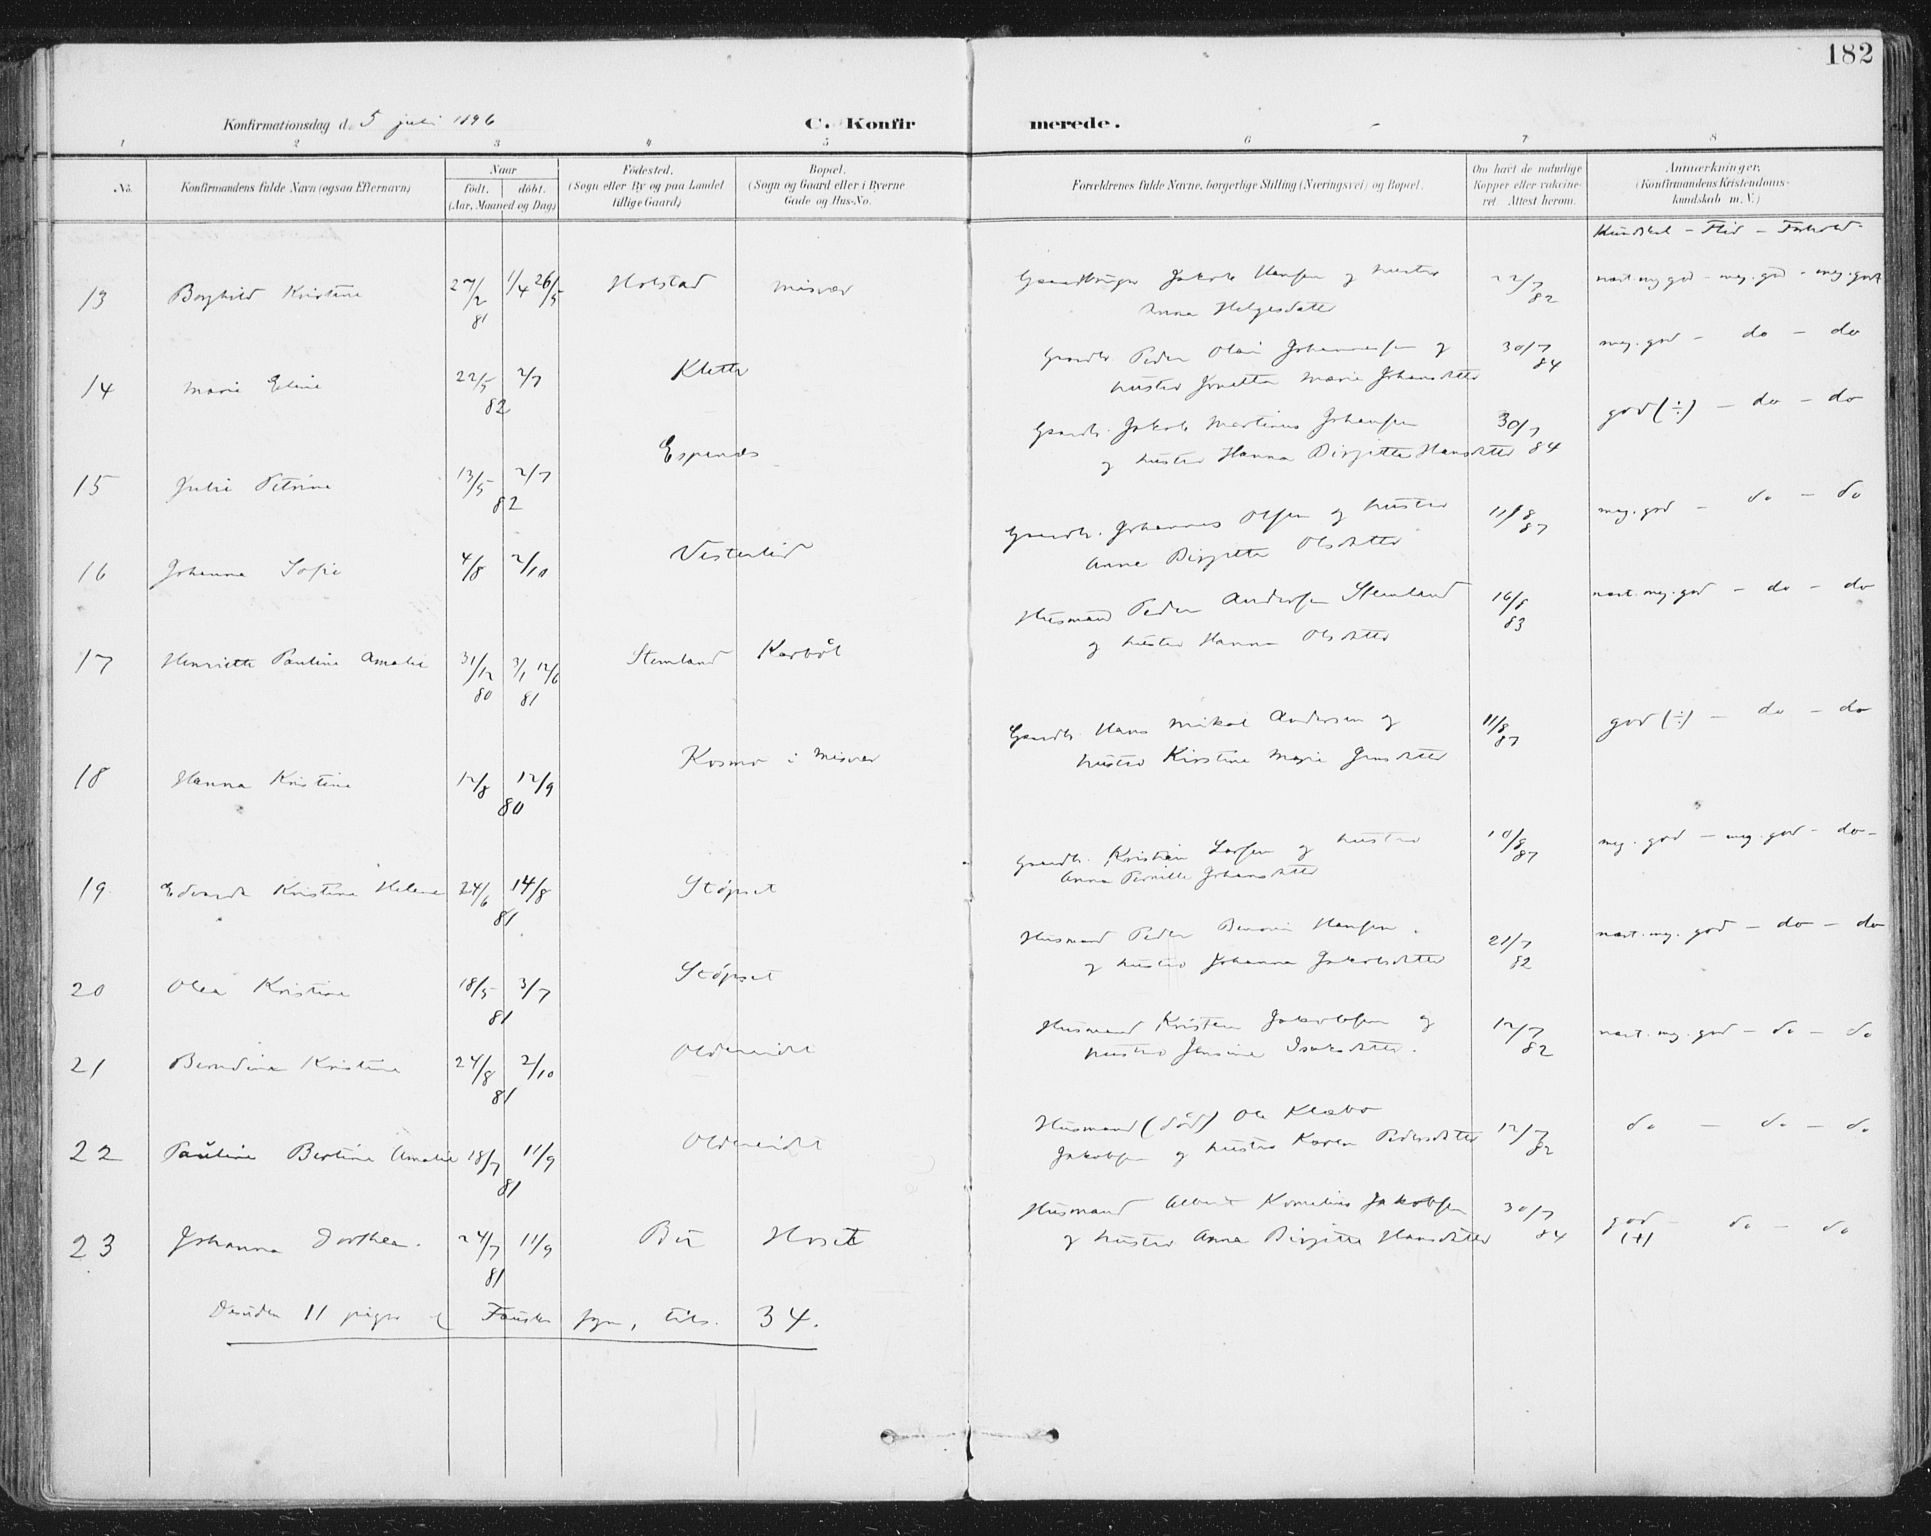 182
Konfirmationsdag d. 5 juli 1896 C. Konfirmerede.
1 2 3 4 5 6 7 8
No. Konfirmandens fulde Navn (ogsaa Efternavn) Naar født. døbt. (Aar, Maaned og Dag) Fødested. (Sogn eller By og paa Landet tillige Gaard) Bopæl. (Sogn og Gaard eller i Byerne Gade og Hus-No. Forældrenes fulde Navne, borgerlige Stilling (Næringsvei) og Bopæl. Om havt de naturlige Kopper eller vakcineret. Attest herom. Anmerkninger. (Konfirmandens Kristendomskundskab m. V.)
Kundskab - Flid - Forhold
13 Borghild Kristine 27/2 81 1/4 26/5 Holstad Misvær Gaardbruger Jakob Hansen og hustru Anna Helgesdatter 22/7 82 næst. meg. god - meg. god - meg. godt
14 Marie Eline 22/5 2/7 82 Klette Gaardb. Peder Olai Johannesen og hustru Jonetta Marie Johansdtter 30/7 84 meg. god - do - do
15 Julie Petrine 13/5 2/7 82 Espenes Gaardb. Jakob Martinus Johansen og hustru Hanna Birgitte Hansdtter 30/7 84 god (÷) - do - do
16 Johanna Sofie 4/8 2/10 Vesterlid Gaardb. Johannes Olsen og hustru Anne Birgitte Olsdtter 11/8 87 meg. god - do - do
17 Henriette Pauline Amalie 31/12 80 3/1 12/6 81 Stemland Karbøl Husmand Peder Andersen Stemland og hustru Hanna Olsdtter 16/8 83 næst. meg. god - do - do
18 Hanna Kristine 12/8 12/9 80 Kosmo i Misvær Gaardb. Hans Mikal Andersen og hustru Kirstine Marie Jensdtter 11/8 87 god (÷) - do - do
19 Edvarda Kristine Helene 24/6 14/8 81 Støpset Gaardb. Kristian Larsen og hustru Anna Pernille Johansdtter 10/8 87 meg. god - meg. god - do -
20 Olea Kristine 18/5 3/7 81 Støpset Husmand Peder Benoni Hansen og hustru Johanna Jakobsdtter 21/7 82 næst. meg. god - do - do
21 Berndina Kristine 24/8 2/10 81 Oldereidet Husmand Kristen Jakobsen og hustru Jensine Isaksdtter. 12/7 82 næst. meg. god - do - do
22 Pauline Bertine Amalie 18/7 11/9 81 Oldereidet Husmand (død) Ole Klæbo Jakobsen og hustru Karen Pedersdtter 12/7 82 do - do - do
23 Johanna Dorthea. 24/7 11/9 81 Hoset Husmand Albert Kornelius Jakobsen og hustru Anna Birgitte Hansdtter 30/7 84 god (+) - do - do
Desuden 11 piger af Fauske sogn, tils. 34.